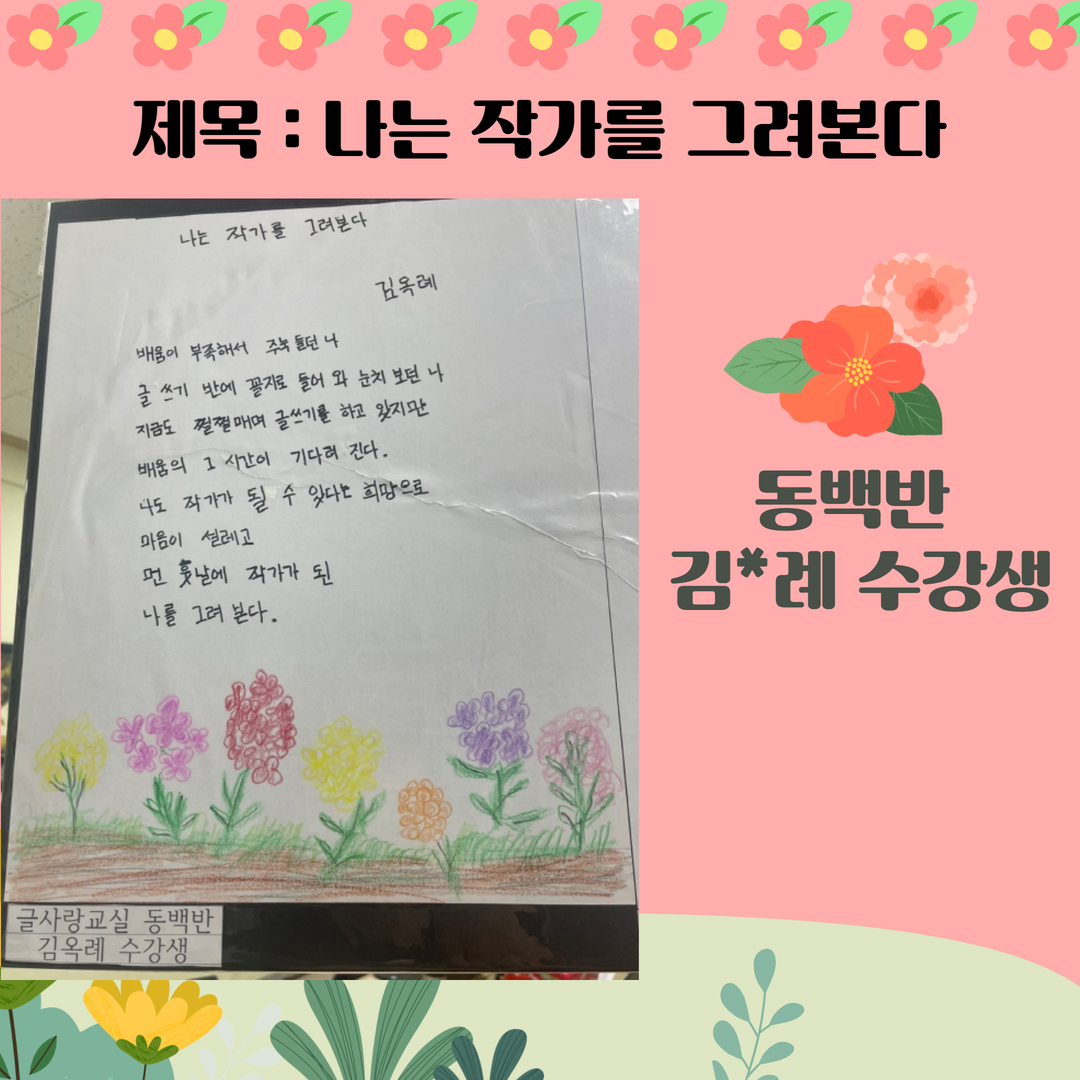 제목 : 나는 작가를 그려본다
나는 작가를 그려본다
김옥례
배움이 부족해서 주눅 들던 나
글 쓰기 반에 꼴지로 들어 와 눈치 보던 나
지금도 쩔쩔매며 글쓰기를 하고 있지만
배움의 그 시간이 기다려 진다.
나도 작가가 될 수 있다는 희망으로
마음이 설레고
먼 훗날에 작가가 된
나를 그려 본다.
글사랑교실 동백반
김옥례 수강생
동백반
김*례 수강생